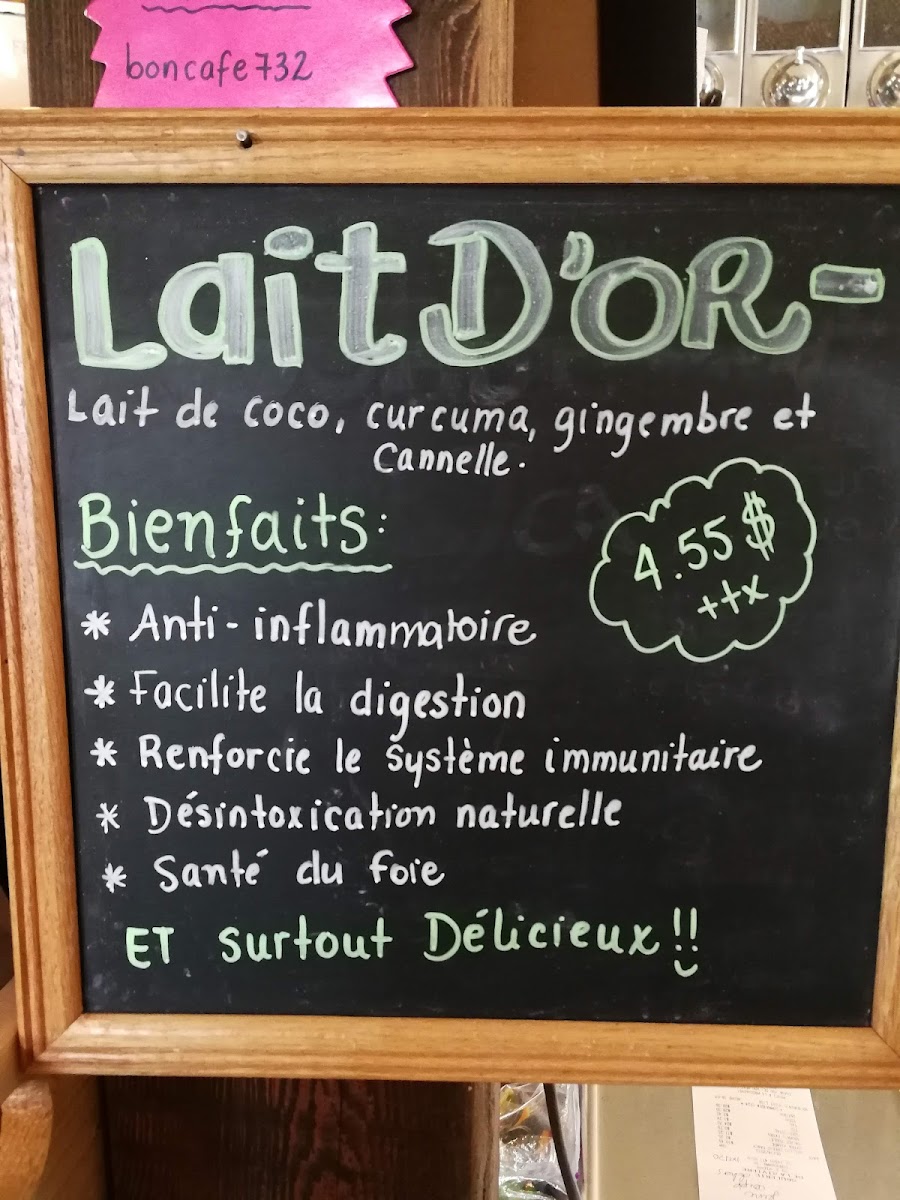 boncafe732
Lait D'OR-
Lait de coco, curcuma, gingembre et
Cannelle.
Bienfaits:
4.55$
++x
* Anti-inflammatoire
* Facilite la digestion
* Renforcie le système immunitaire
* Désintoxication naturelle
* Santé du foie
ET surtout Délicieux!!